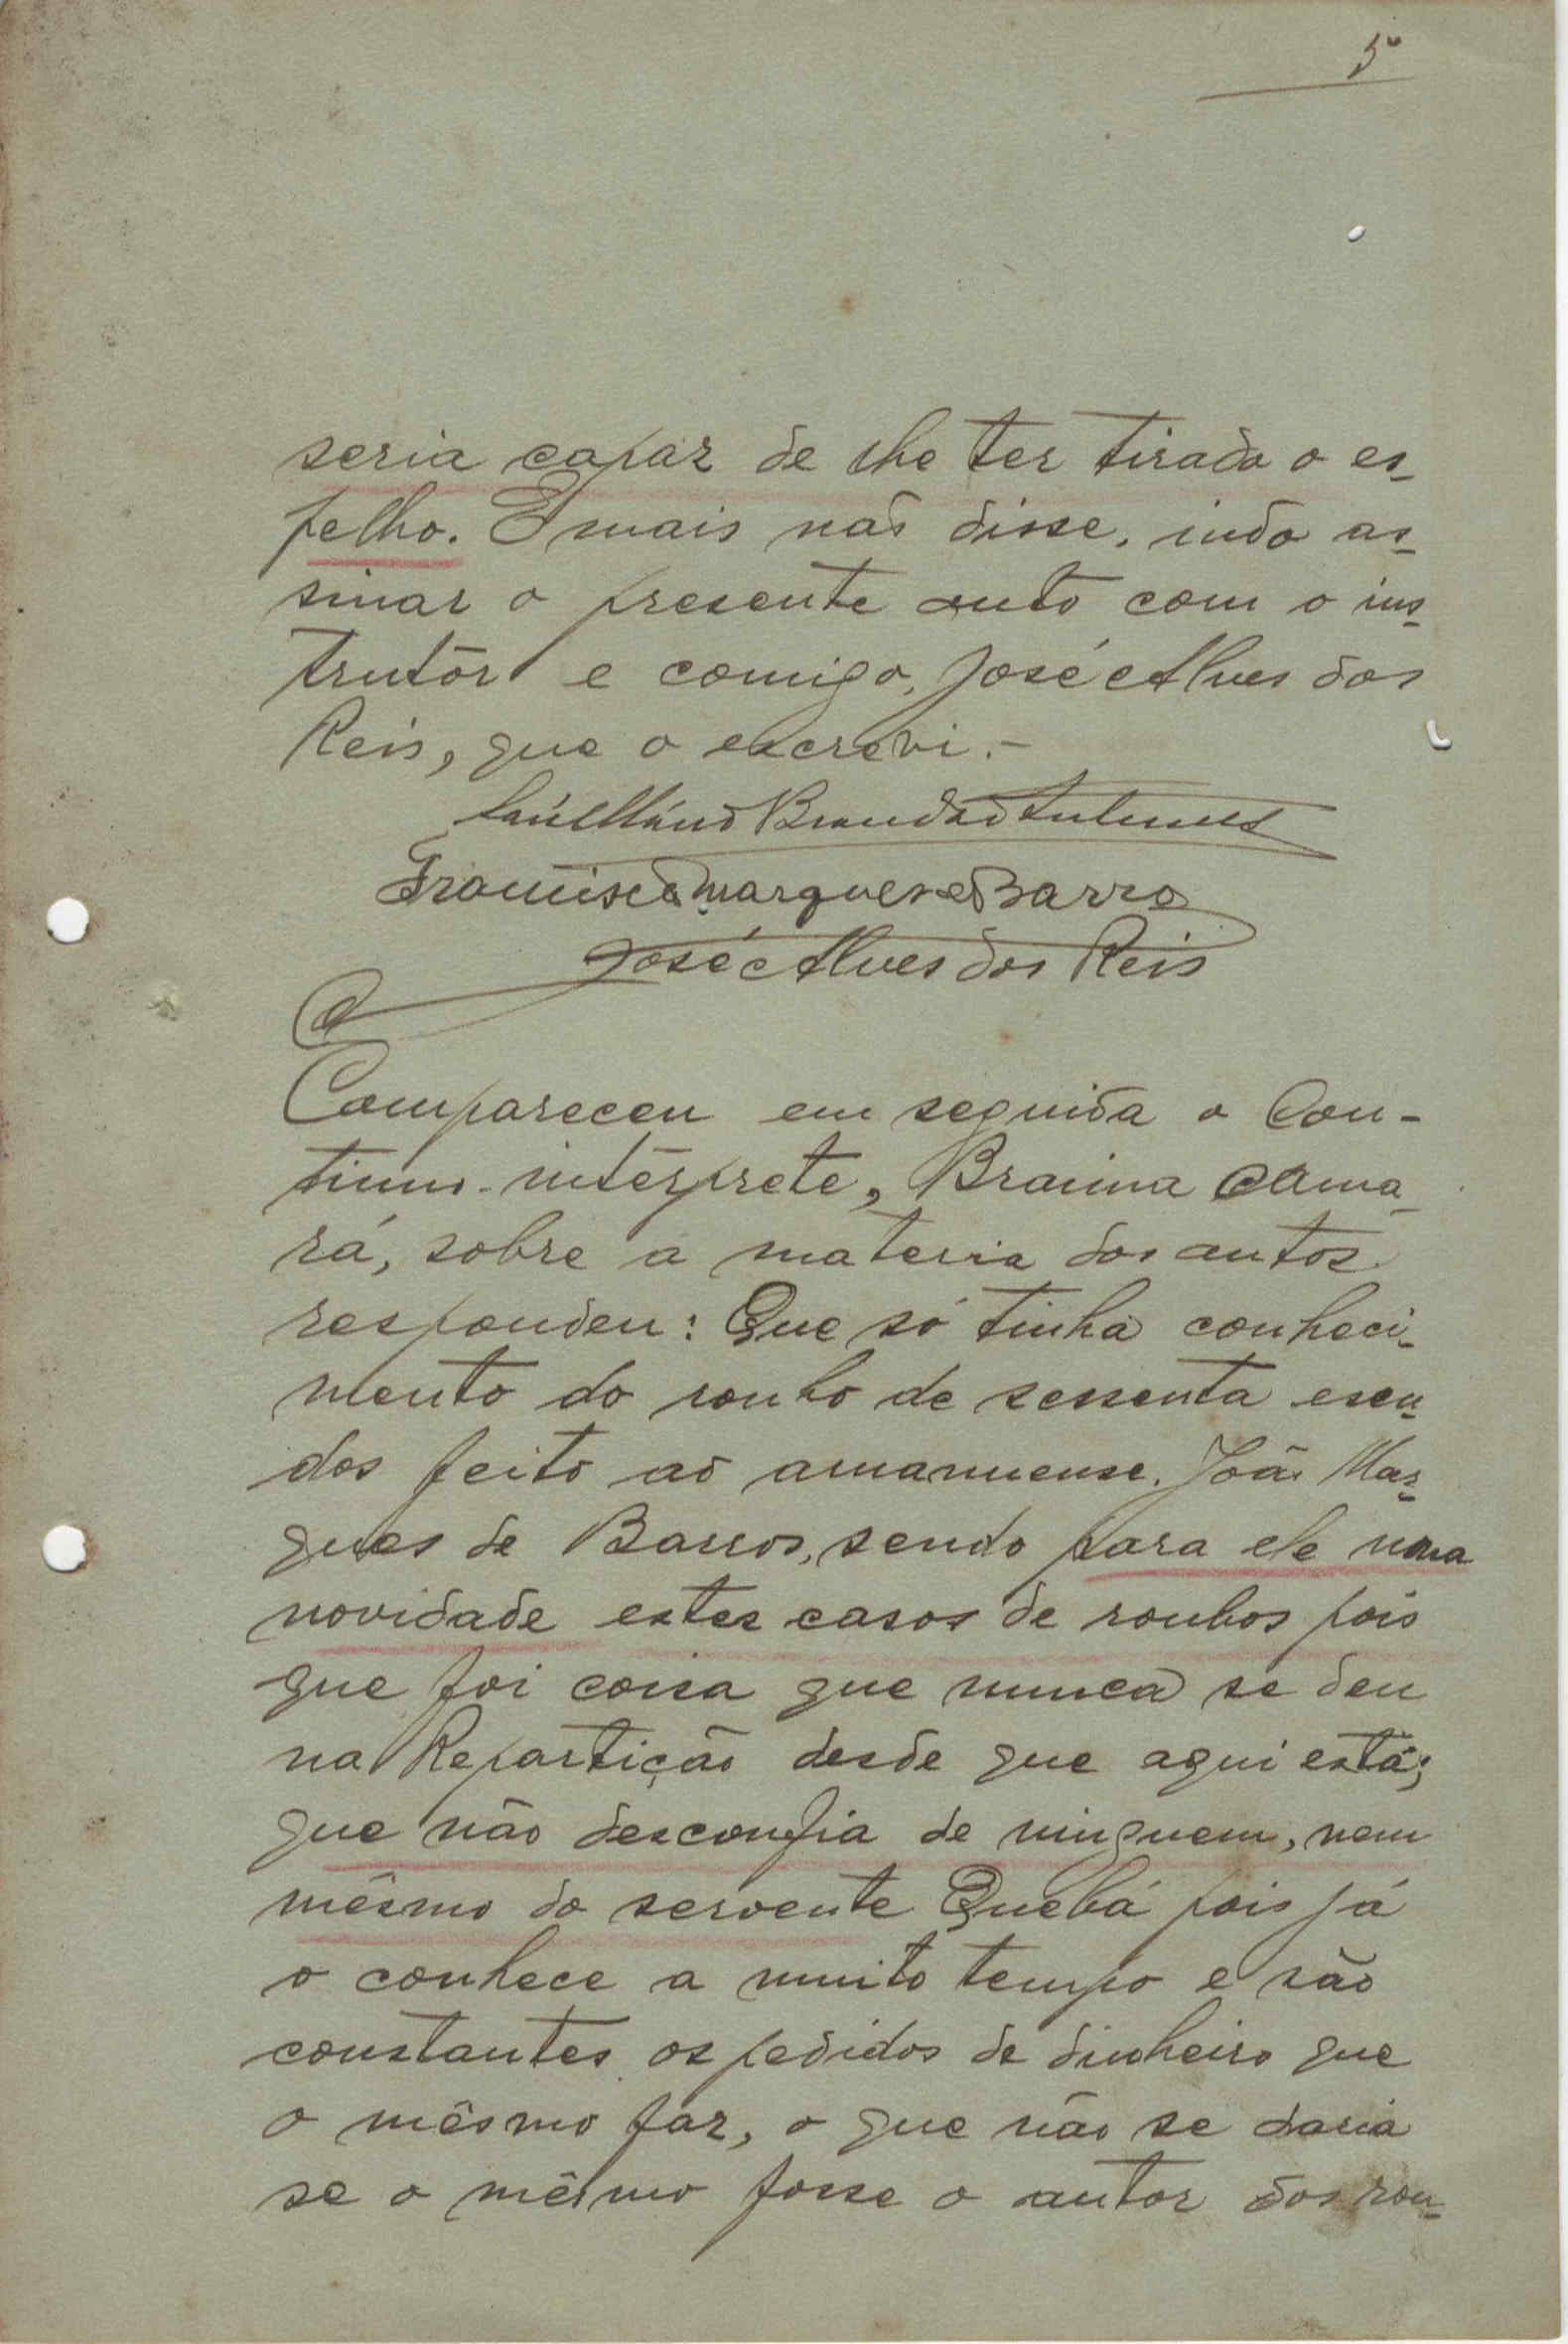 5
seria capaz de lhe ter tirado o es-
pelho. E mais não disse, indo as-
sinar o presente auto com o ins-
trutôr e comigo, José Alves dos
Reis, que o escrevi.-
Brandão Antunes
Francisco Marques de Barros
José Alves dos Reis
Compareceu em seguida o Con-
tinuo-intérprete, Braima Cama-
rá, sobre a materia dos autos
respondeu: Que só tinha conheci-
mento do roubo de sessenta escu-
dos feito ao amanuense, João Mar-
ques de Barros, sendo para ele uma
novidade estes casos de roubos pois
que foi coisa que nunca se deu
na Repartição desde que aqui está;
que não desconfia de ninguem, nem
mêsmo do servente Quebá pois já
o conhece a muito tempo e são
constantes os pedidos de dinheiro que
o mêsmo faz, o que não se daria
se o mêsmo fosse o autor dos rou-